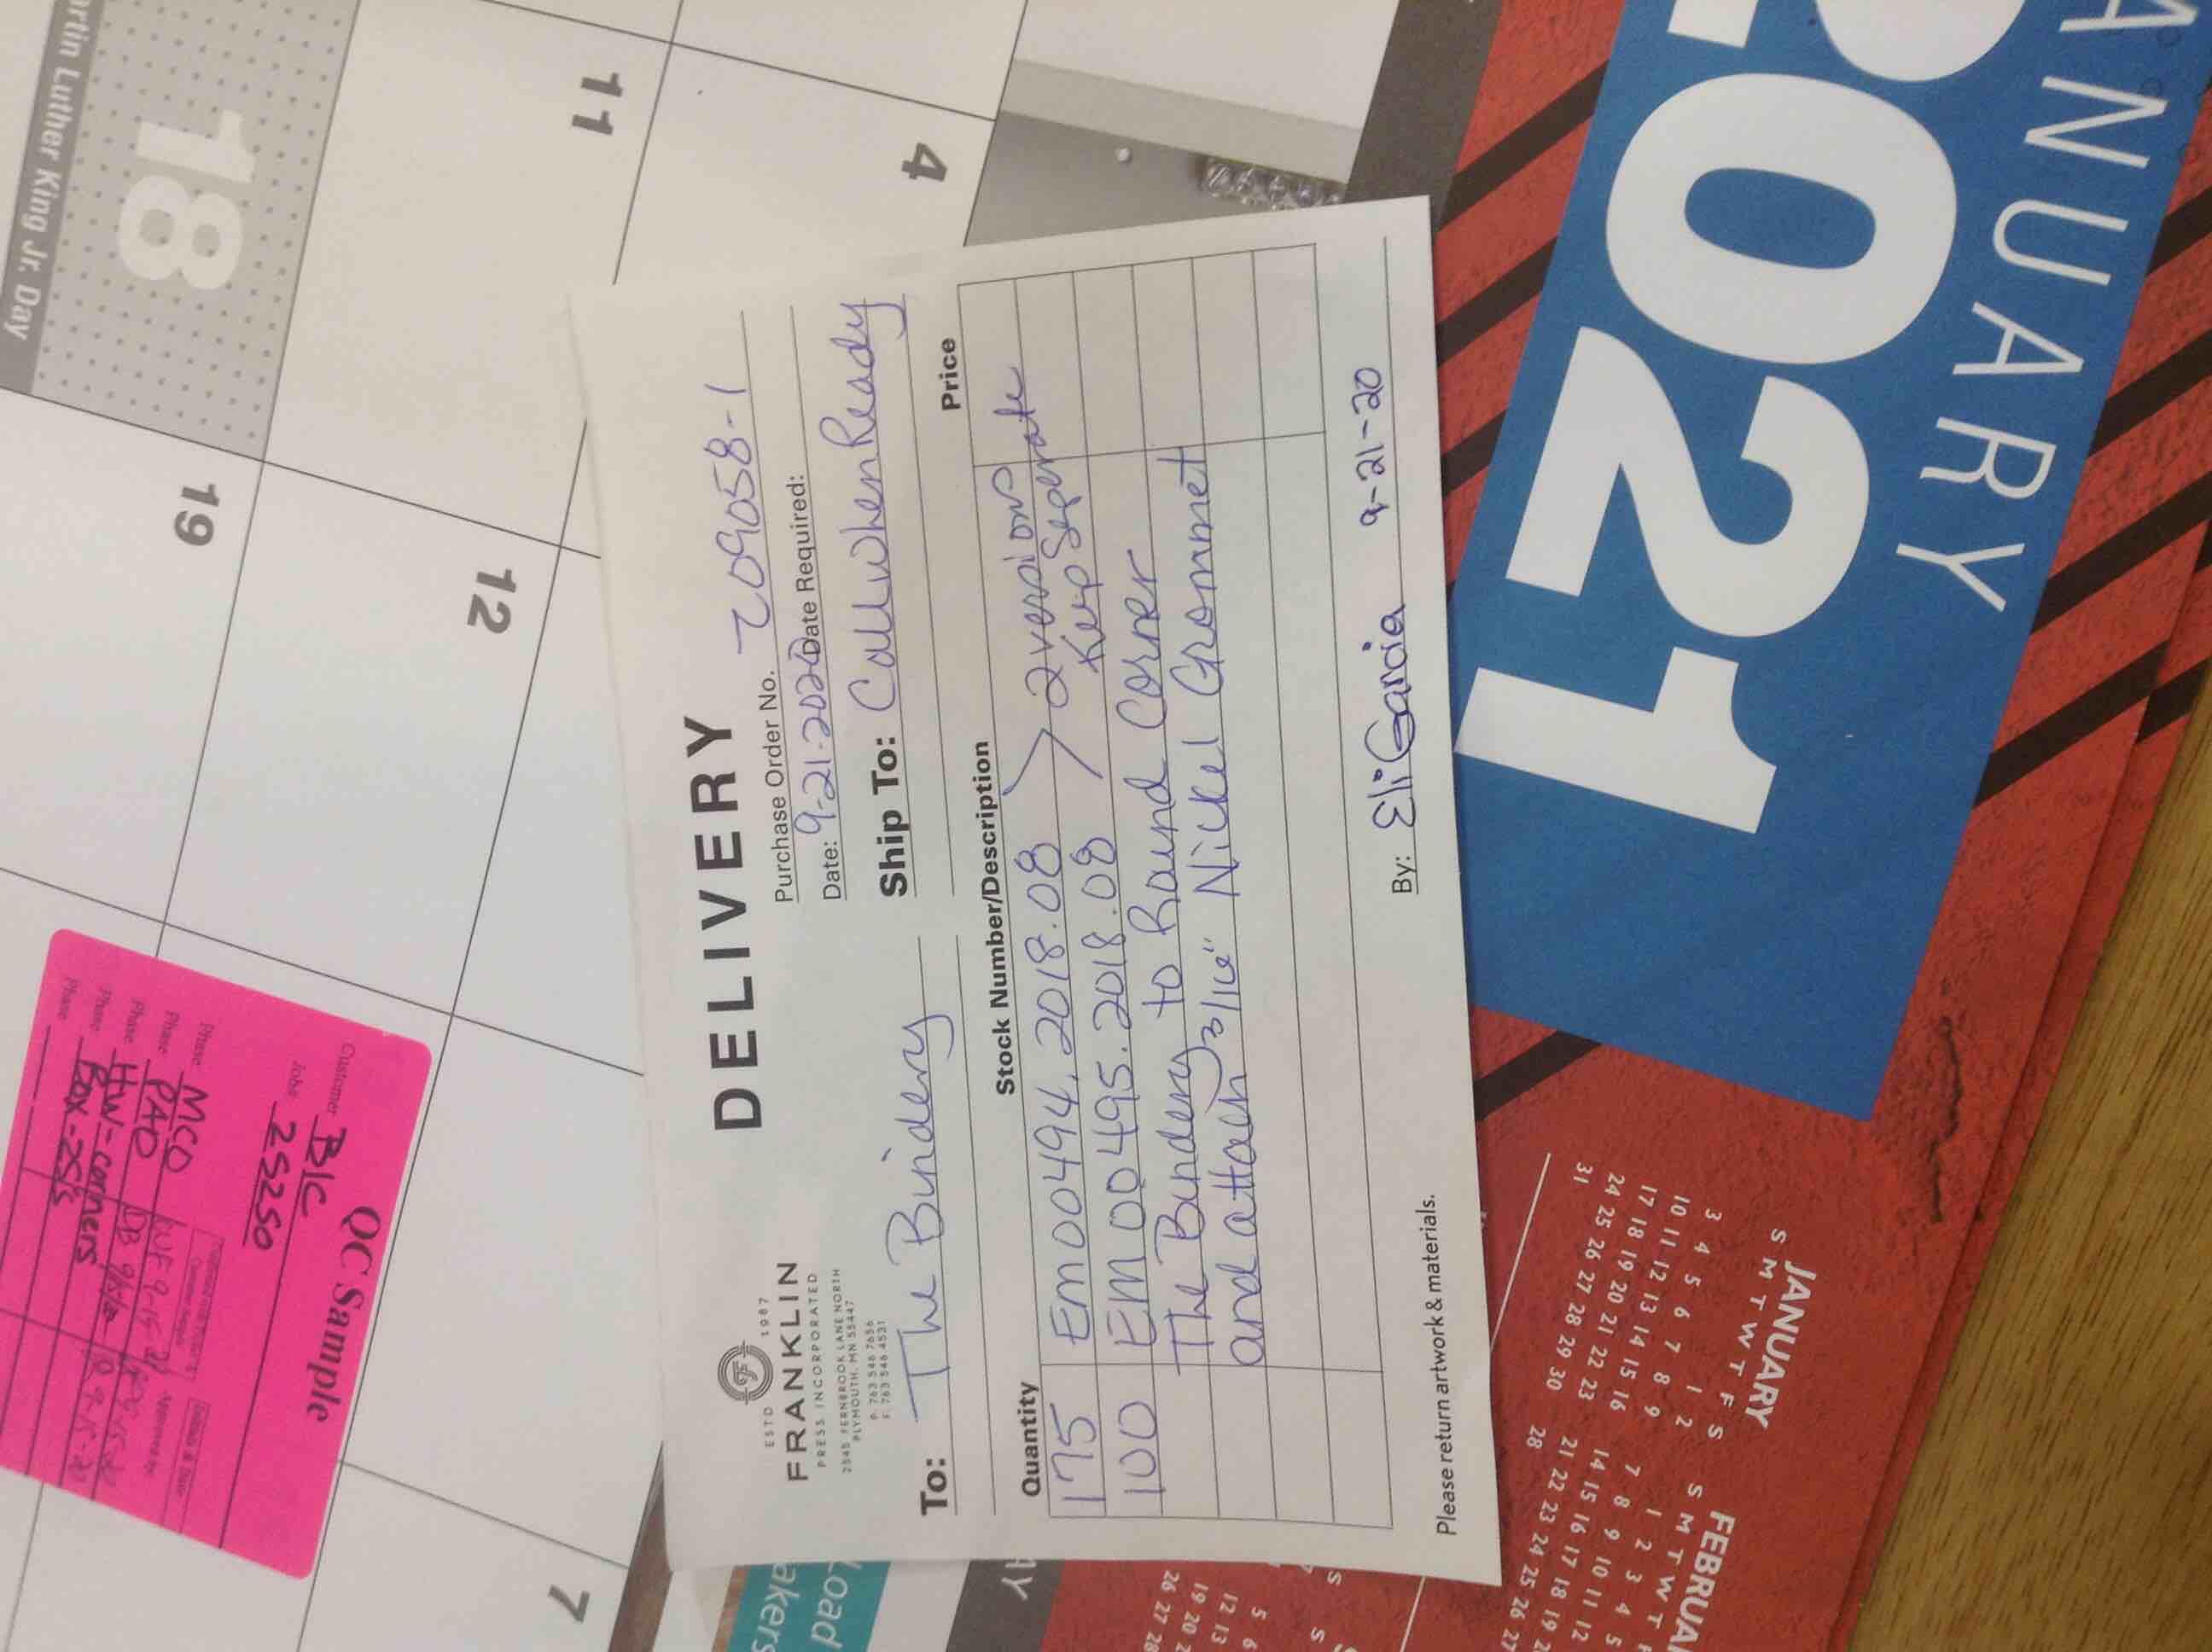 DELIVERY
ESTD 1987
FRANKLIN
PRESS INCORPORATED
2545 FERNBROOK LANE NORTH
PLYMOUTH, MN 55447
P: 763 546 7656
F: 763 546 4531
Purchase Order No. 209058-1
Date: 9-21-2020 Date Required:
To: The Bindery
Ship To: Call when Ready
Quantity Stock Number/Description Price
175 Em00494.2018.08 > 2 versions
100 EM00495.2018.08 Keep Seperate
The Bindery to Round Corner
and attach 3/16" Nickel Grommet
By: Eli Garcia 9-21-20
Please return artwork & materials.
QC Sample
Customer BIC
Job# 25250
Phase MCD
Phase PAD
Phase HW-corners
Phase Box-25's
Phase
rtin Luther King Jr. Day
18
11
4
19
12
7
JANUARY
2021
JANUARY
S M T W T F S
1 2
3 4 5 6 7 8 9
10 11 12 13 14 15 16
17 18 19 20 21 22 23
24 25 26 27 28 29 30
31
FEBRUA
S M T W T F
1 2 3 4 5
7 8 9 10 11 12
14 15 16 17 18 19 2
21 22 23 24 25 26 27
28
Load
akers
AY
S
5 6
12 13
19 20 2
26 27 28
S